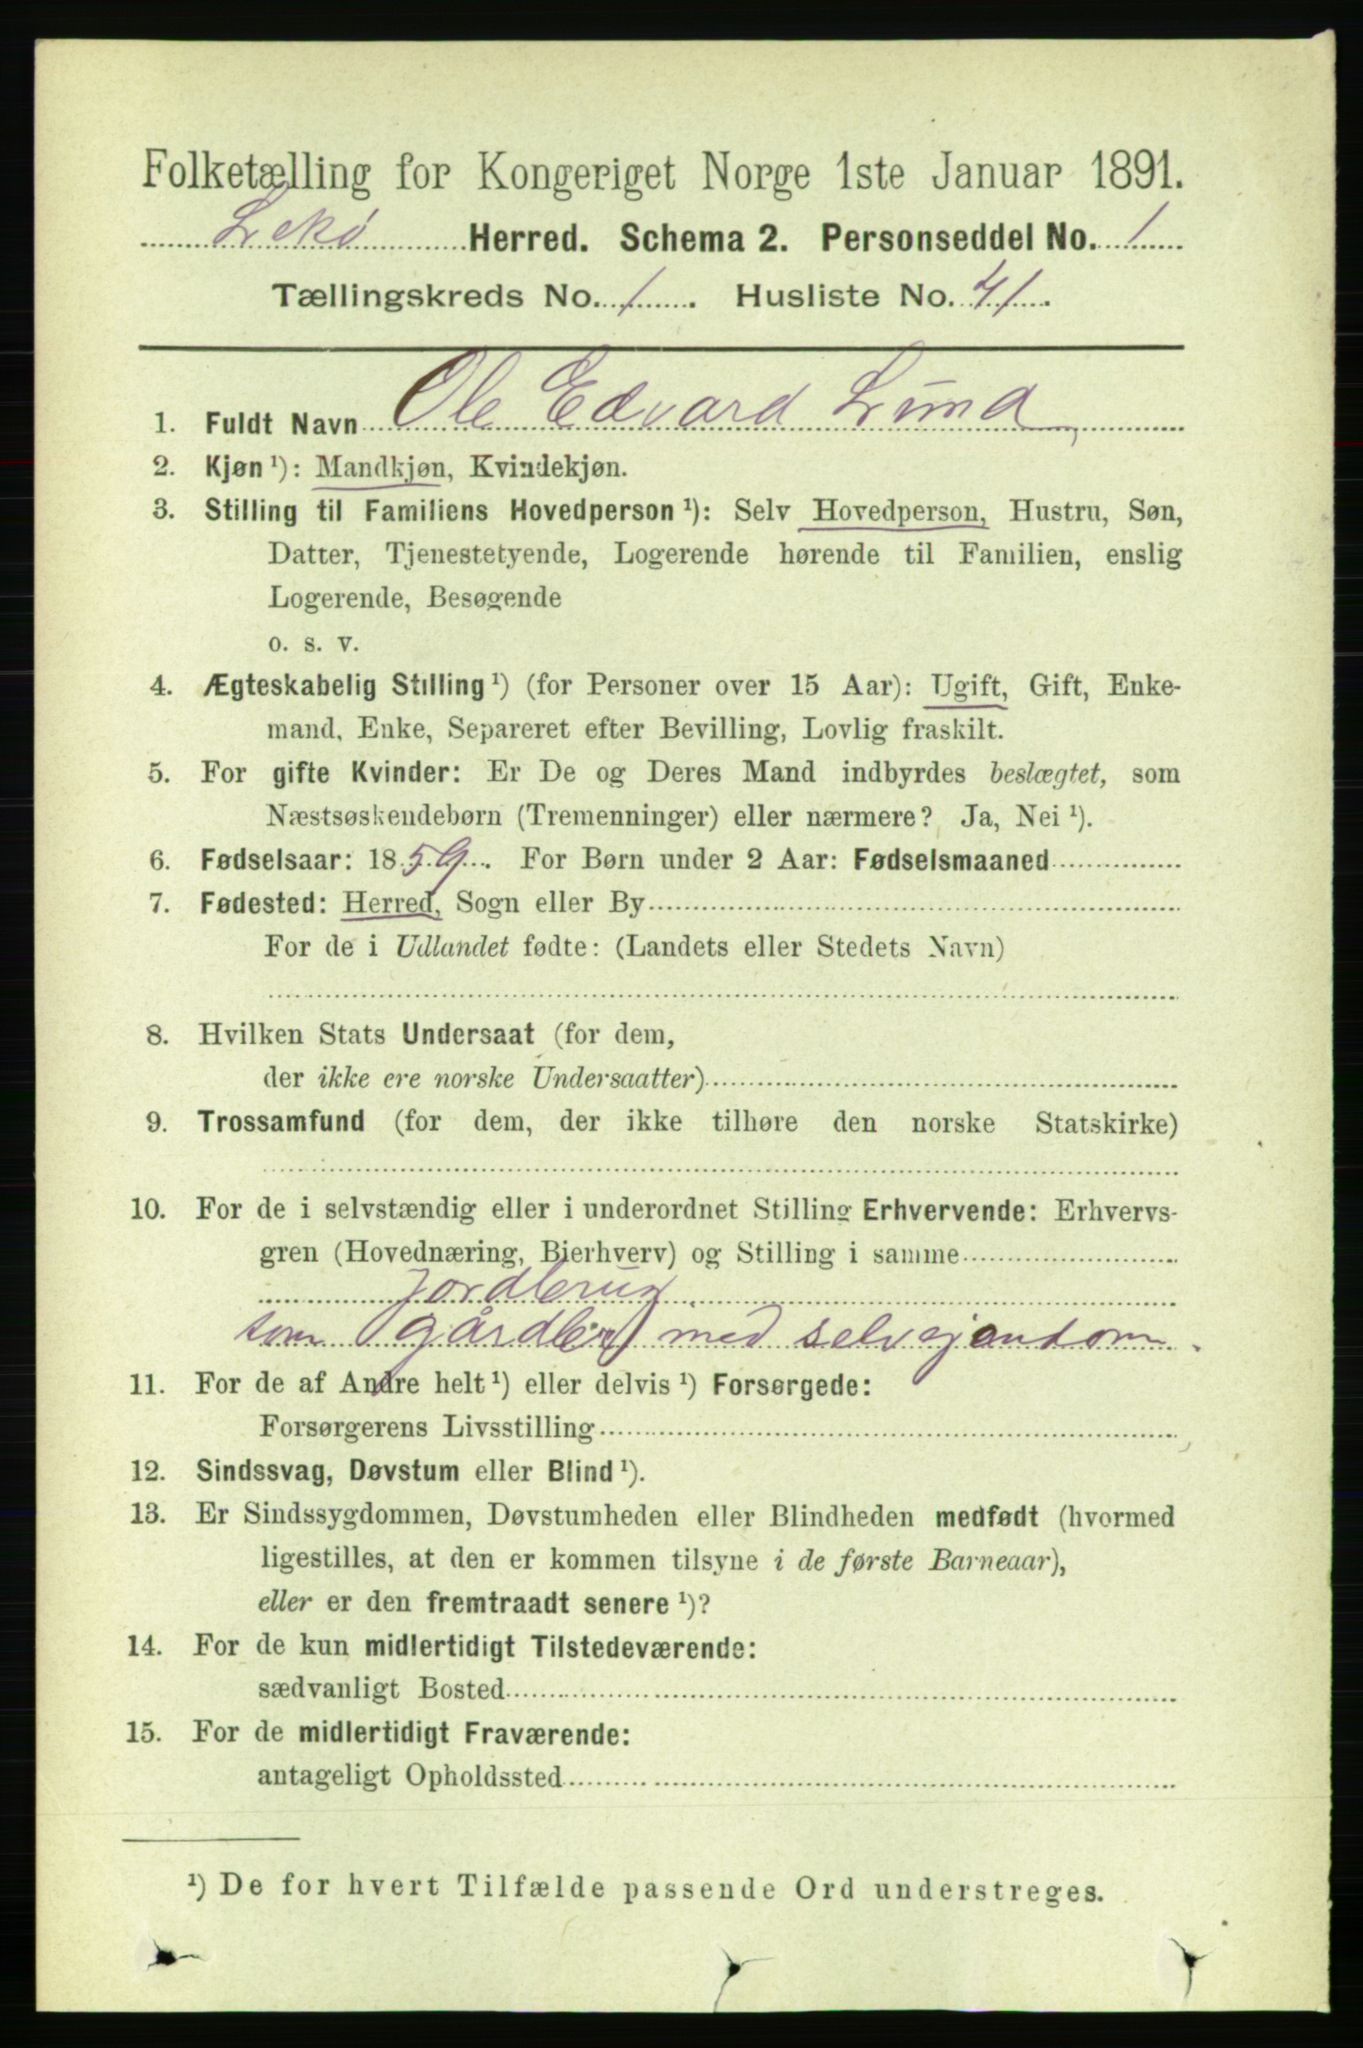 Folketælling for Kongeriget Norge 1ste Januar 1891.
Lekø Herred. Schema 2. Personseddel No. 1
Tællingskreds No. 1. Husliste No. 41.
1. Fuldt Navn Ole Edvard Lund
2. Kjøn ¹): Mandkjøn, Kvindekjøn.
3. Stilling til Familiens Hovedperson ¹): Selv Hovedperson, Hustru, Søn,
Datter, Tjenestetyende, Logerende hørende til Familien, enslig
Logerende, Besøgende
o. s. v.
4. Ægteskabelig Stilling ¹) (for Personer over 15 Aar): Ugift, Gift, Enke-
mand, Enke, Separeret efter Bevilling, Lovlig fraskilt.
5. For gifte Kvinder: Er De og Deres Mand indbyrdes beslægtet, som
Næstsøskendebørn (Tremenninger) eller nærmere? Ja, Nei ¹).
6. Fødselsaar: 1859. For Børn under 2 Aar: Fødselsmaaned
7. Fødested: Herred, Sogn eller By
For de i Udlandet fødte: (Landets eller Stedets Navn)
8. Hvilken Stats Undersaat (for dem,
der ikke ere norske Undersaatter)
9. Trossamfund (for dem, der ikke tilhøre den norske Statskirke)
10. For de i selvstændig eller i underordnet Stilling Erhvervende: Erhvervs-
gren (Hovednæring, Bierhverv) og Stilling i samme
Jordbrug
som gårdbr med selvejendom.
11. For de af Andre helt ¹) eller delvis ¹) Forsørgede:
Forsørgerens Livsstilling
12. Sindssvag, Døvstum eller Blind ¹).
13. Er Sindssygdommen, Døvstumheden eller Blindheden medfødt (hvormed
ligestilles, at den er kommen tilsyne i de første Barneaar),
eller er den fremtraadt senere ¹)?
14. For de kun midlertidigt Tilstedeværende:
sædvanligt Bosted
15. For de midlertidigt Fraværende:
antageligt Opholdssted
¹) De for hvert Tilfælde passende Ord understreges.